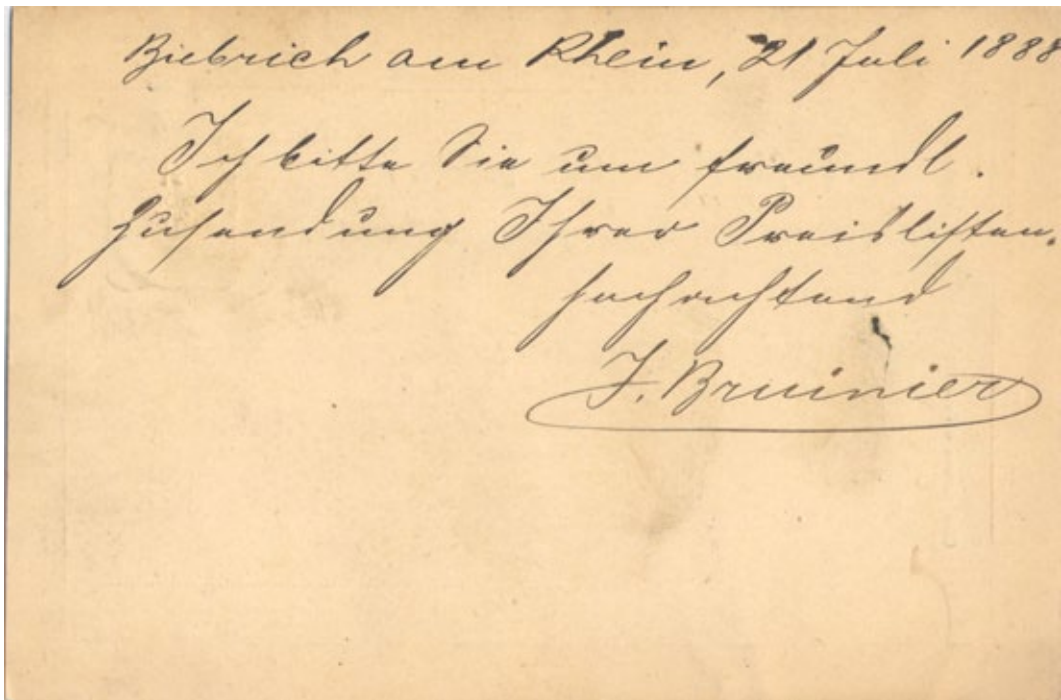 Biebrich am Rhein, 21 Juli 1888
Ich bitte Sie um freundl.
Zusendung Ihrer Preislisten.
hochachtend
J. Bruinier